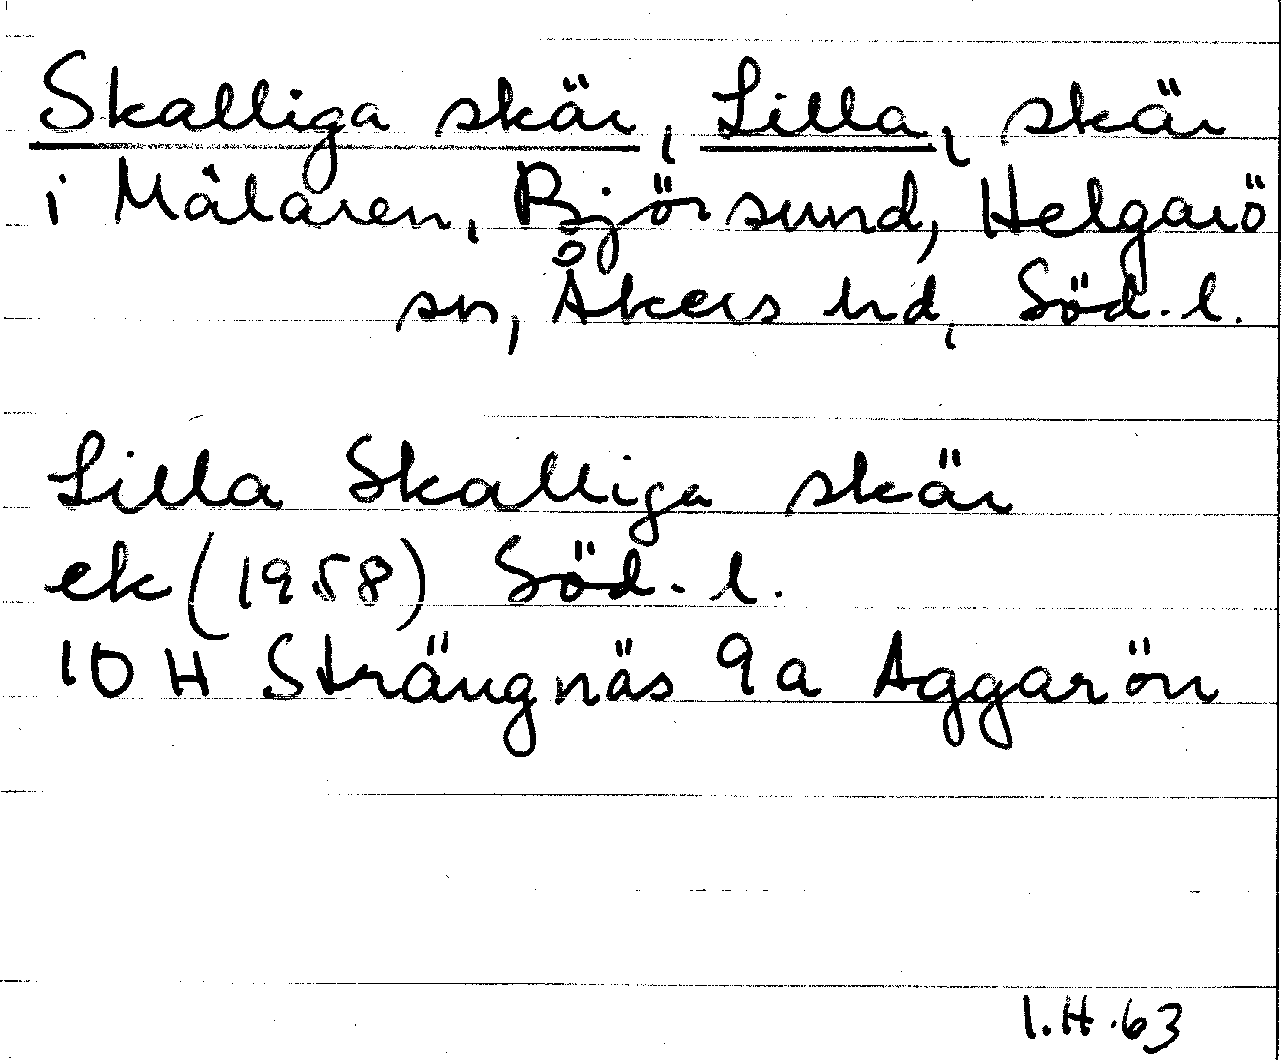 Skalliga skär, Lilla, skär
i Mälaren, Björsund, Helgarö
sn, Åkers hd, Söd. l.
Lilla Skalliga skär
ek (1958) Söd. l.
10 H Strängnäs 9a Aggarön
I.H.63